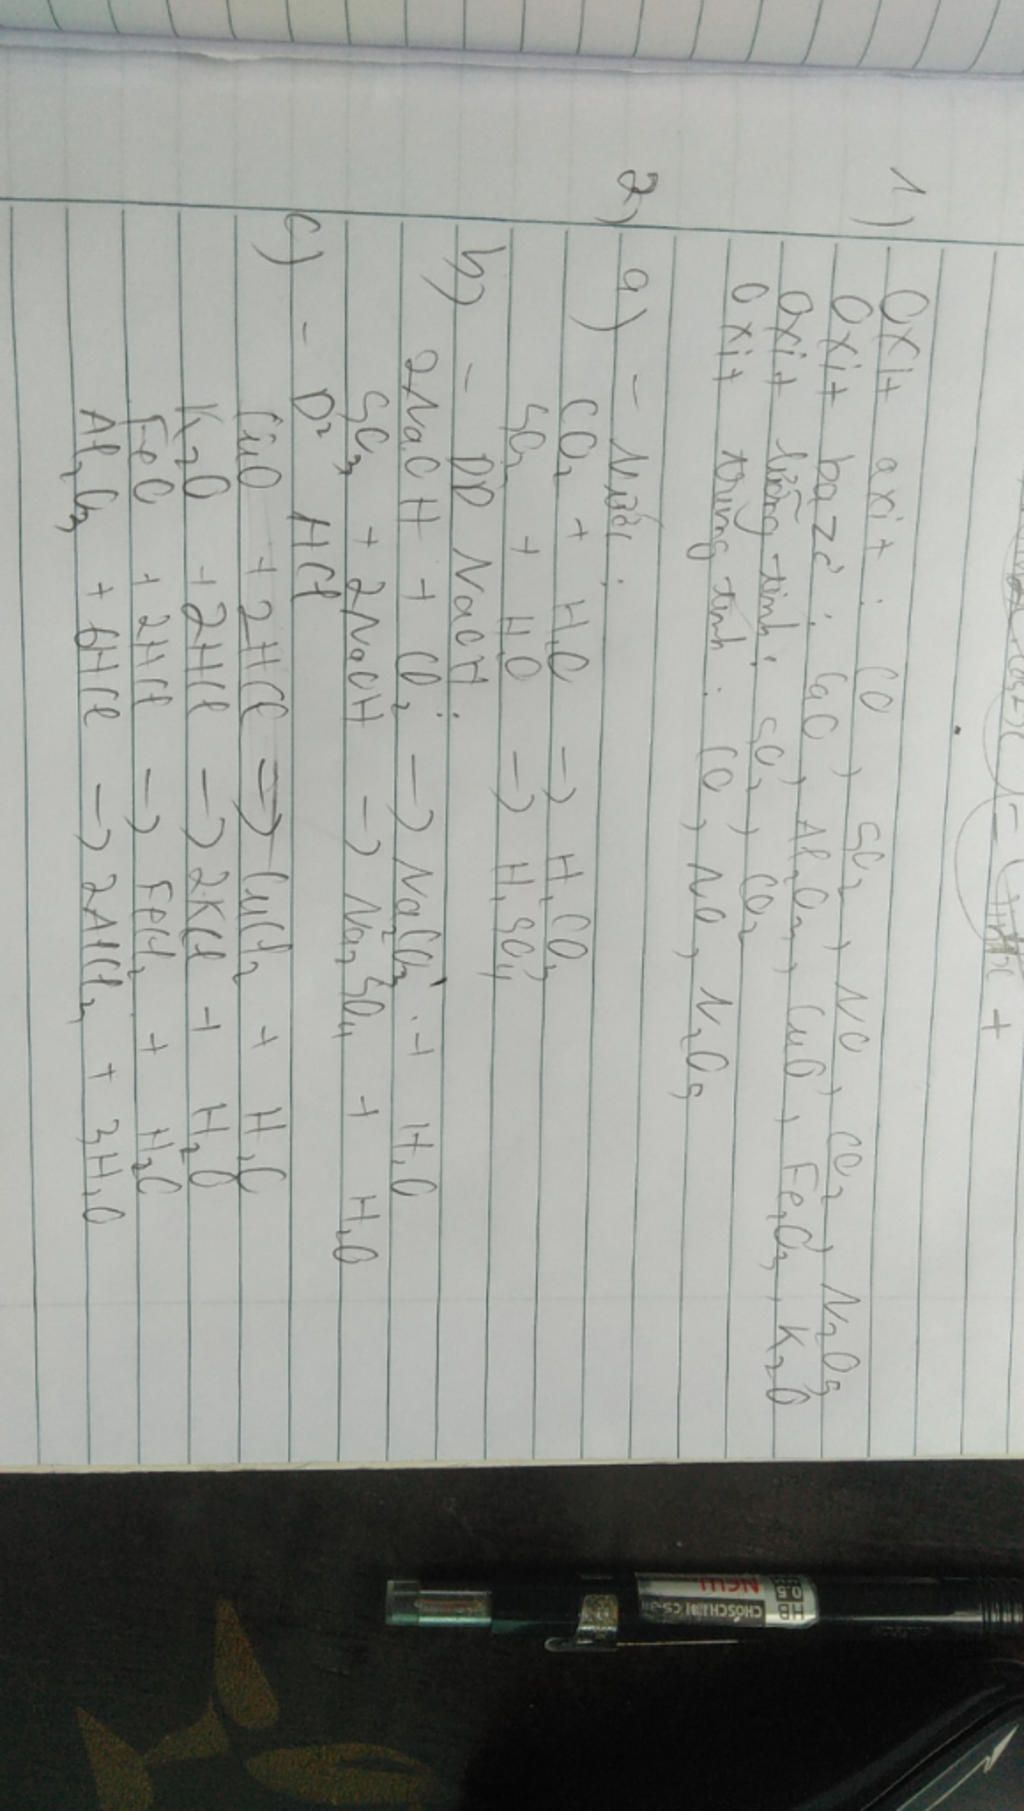 1) Oxit axit : CO, SO2, NO, CO2, N2O5
Oxit bazơ : CaO, Al2O3, CuO, Fe2O3, K2O
Oxit lưỡng tính : SO2, CO2
Oxit trung tính : CO, NO, N2O5
2) a) - Nước :
CO2 + H2O -> H2CO3
SO3 + H2O -> H2SO4
b) - DD NaOH :
2NaOH + CO2 -> Na2CO3 + H2O
SO3 + 2NaOH -> Na2SO4 + H2O
c) - D2 HCl
CuO + 2HCl -> CuCl2 + H2O
K2O + 2HCl -> 2KCl + H2O
FeO + 2HCl -> FeCl2 + H2O
Al2O3 + 6HCl -> 2AlCl3 + 3H2O
HB 0.5 NEW CHOSCH